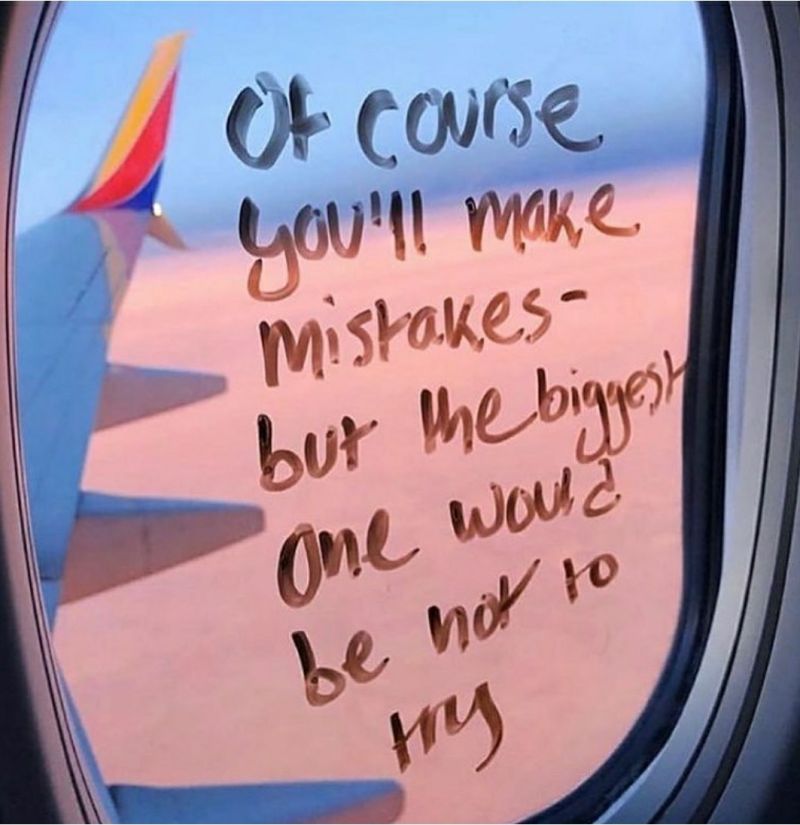 Of course
you'll make
mistakes-
but the biggest
One would
be not to
try